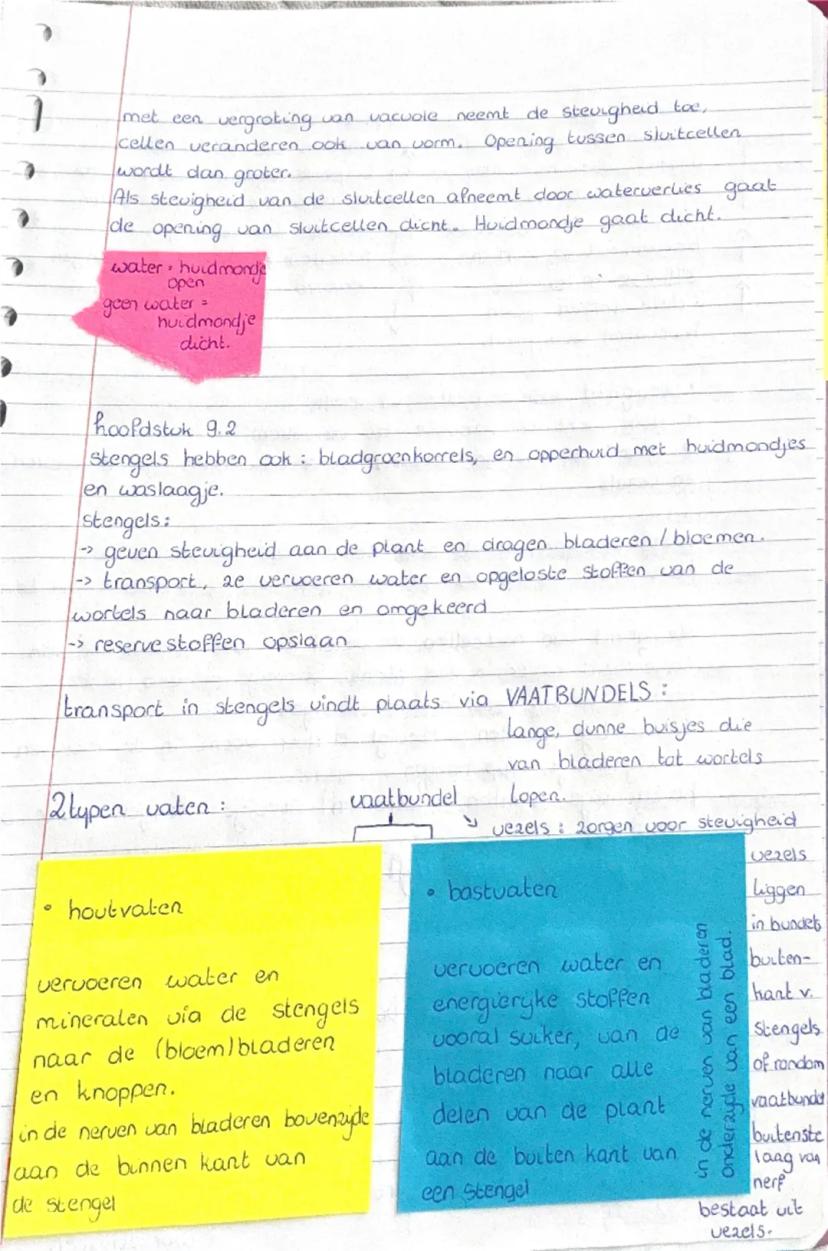 met een vergroting van vacuole neemt de stevigheid toe,
cellen veranderen ook van vorm. Opening tussen sluitcellen
wordt dan groter.
Als stevigheid van de sluitcellen afneemt door waterverlies gaat
de opening van sluitcellen dicht. Huidmondje gaat dicht.
water = huidmondje
open
geen water =
huidmondje
dicht.
hoofdstuk 9.2
stengels hebben ook : bladgroenkorrels, en opperhuid met huidmondjes
en waslaagje.
stengels:
-> geven stevigheid aan de plant en dragen bladeren / bloemen.
-> transport, ze vervoeren water en opgeloste stoffen van de
wortels naar bladeren en omgekeerd
-> reservestoffen opslaan
transport in stengels vindt plaats via VAATBUNDELS :
lange, dunne buisjes die
van bladeren tot wortels
lopen.
2 typen vaten :
vaatbundel
↘ vezels : zorgen voor stevigheid
• houtvaten
vervoeren water en
mineralen via de stengels
naar de (bloem)bladeren
en knoppen.
in de nerven van bladeren bovenzijde
aan de binnen kant van
de stengel
• bastvaten
vervoeren water en
energierijke stoffen
vooral suiker, van de
bladeren naar alle
delen van de plant
aan de buiten kant van
een stengel
in de nerven van bladeren
onderzijde van een blad.
vezels
liggen
in bundels
buiten-
kant v.
stengels
of rondom
vaatbundel
buitenste
laag van
nerf
bestaat uit
vezels.